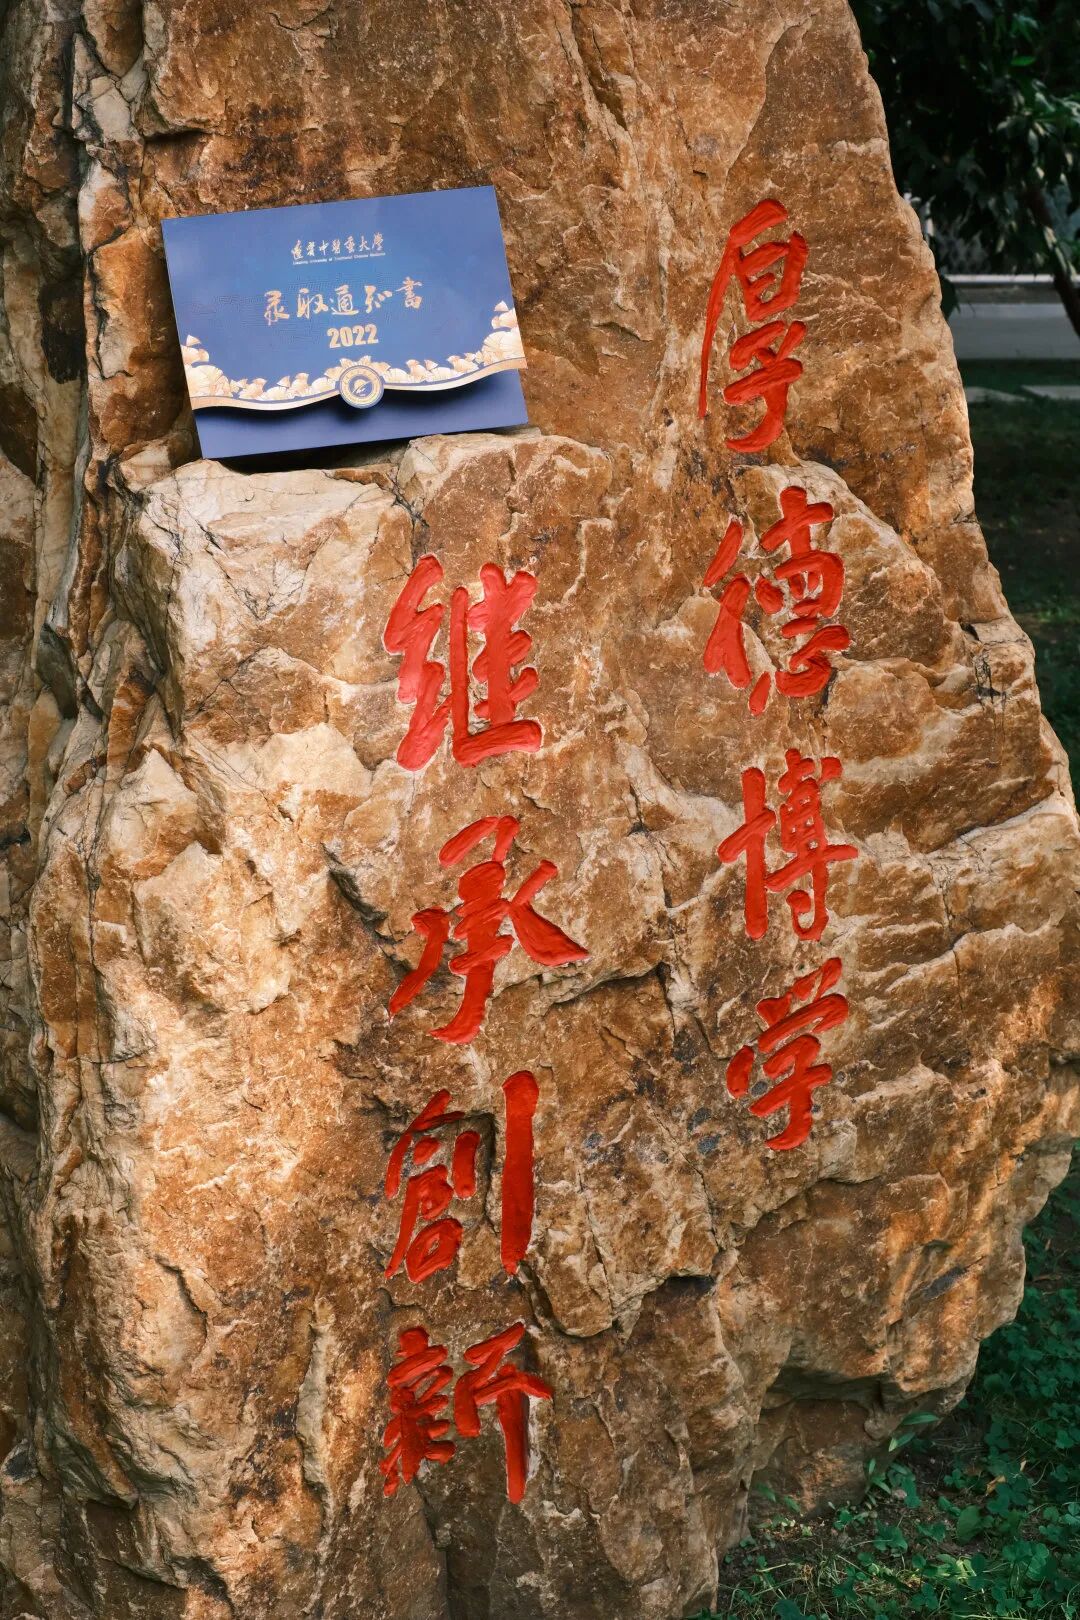 遼寧中醫藥大學
Liaoning University of Traditional Chinese Medicine
录取通知書
2022
厚德博学
继承創新